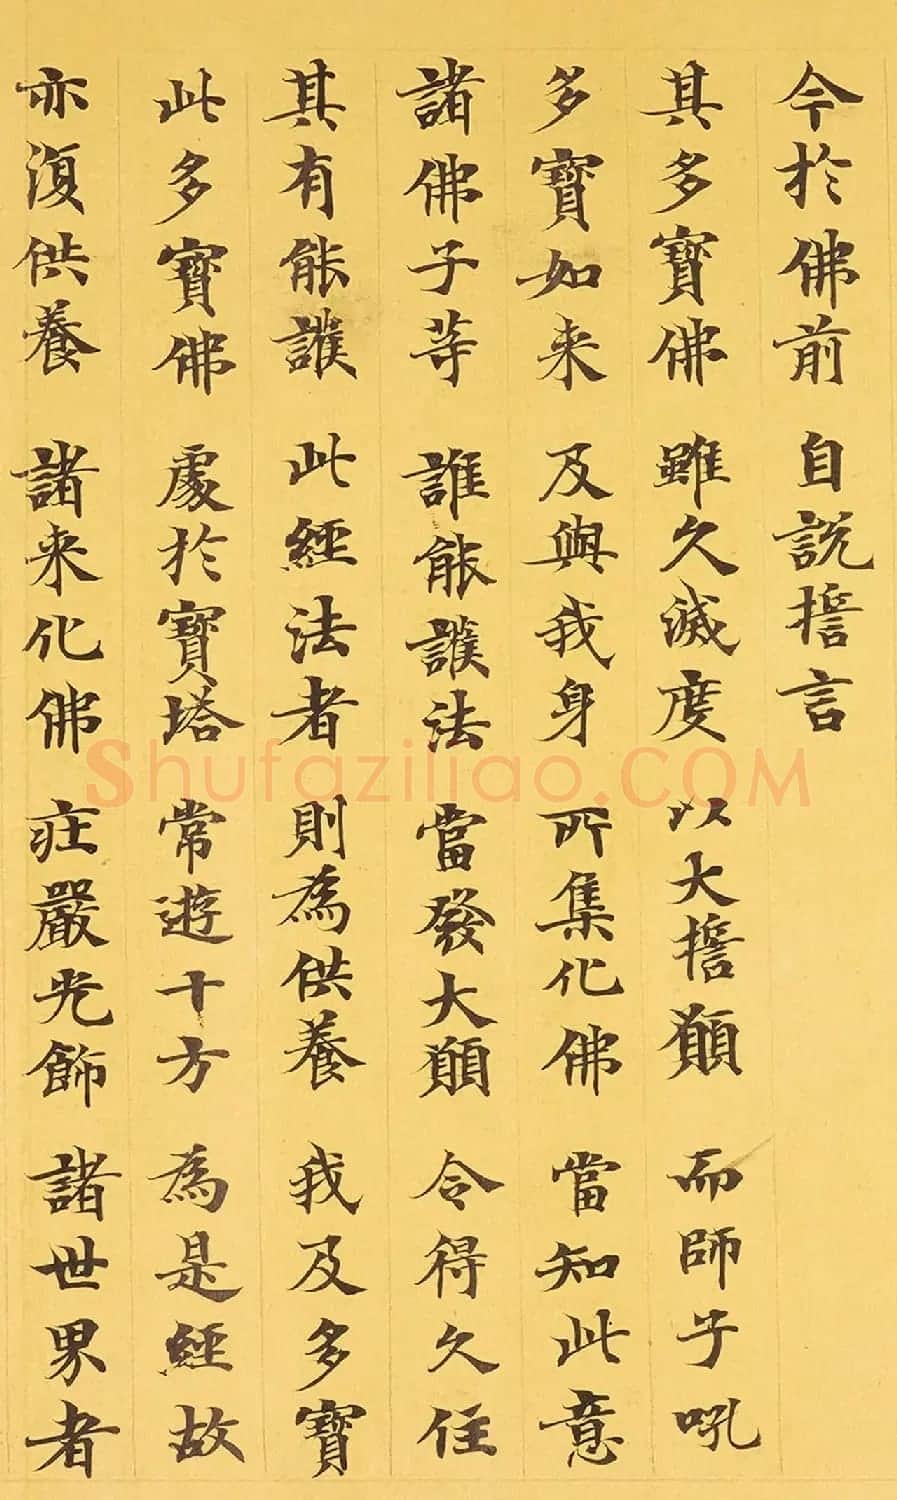 今於佛前自說誓言
其多寶佛雖久滅度以大誓願而師子吼
多寶如来及與我身所集化佛當知此意
諸佛子等誰能護法當發大願令得久住
其有能護此經法者則為供養我及多寶
此多寶佛處於寶塔常遊十方為是經故
亦復供養諸来化佛莊嚴光飾諸世界者
Shufaziliao.COM